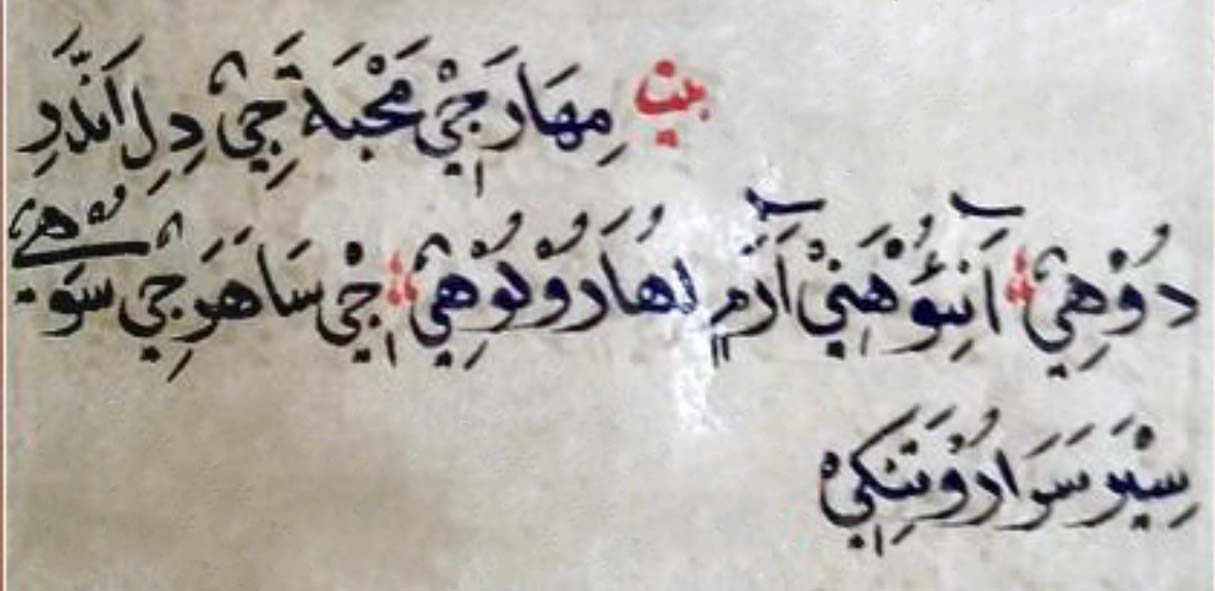 بيت مِهَارَ جِيْ مَحْبَةَ جِيْ دِلِ اَنْدَرِ
دُوْهِيْ آنِيُوْ هَنِيْ آرَمِ لُهَارُوْ لُوْهِيْ جِيْ سَاهَرَ جِيْ سَوَ
سِيْرَ سَوَارُوْ تَنِکِيْ